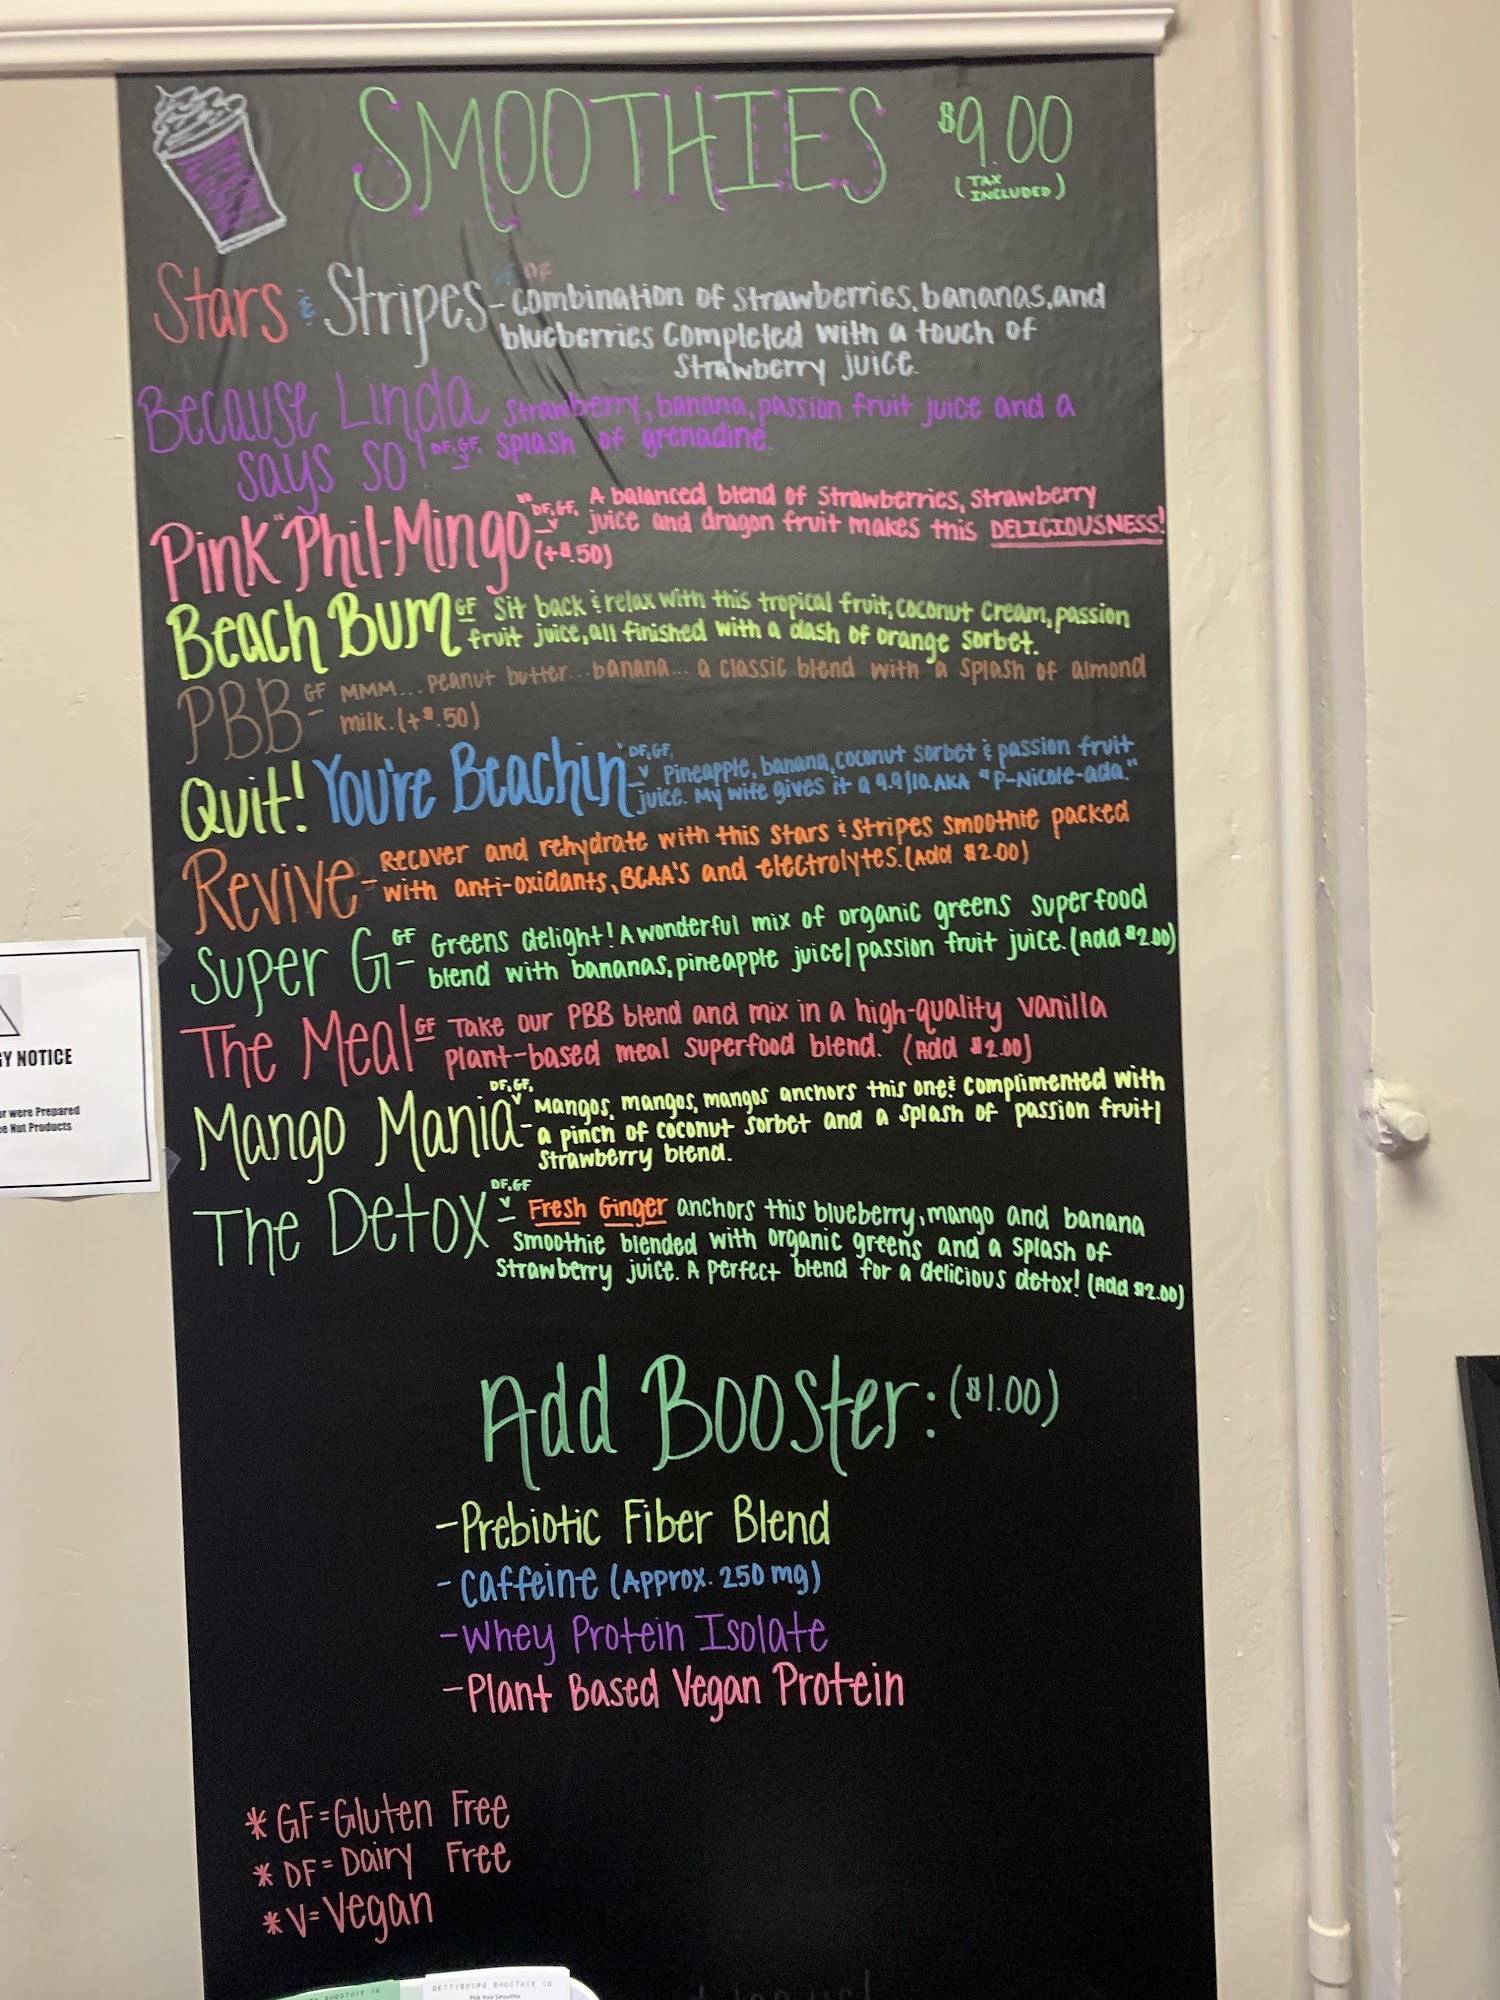 SMOOTHIES $9.00
(TAX
INCLUDED)
DF
Stars & Stripes - combination of strawberries, bananas, and
blueberries completed with a touch of
strawberry juice.
Because Linda strawberry, banana, passion fruit juice and a
says so! DF, GF, V splash of grenadine.
Pink "Phil-Mingo" DF, GF, V A balanced blend of strawberries, strawberry
juice and dragon fruit makes this DELICIOUSNESS!
(+$.50)
Beach Bum GF Sit back & relax with this tropical fruit, coconut cream, passion
fruit juice, all finished with a dash of orange sorbet.
PBB GF MMM... peanut butter... banana... a classic blend with a splash of almond
milk. (+$.50)
Quit! You're Beachin' DF, GF, V Pineapple, banana, coconut sorbet & passion fruit
juice. My wife gives it a 9.9/10. AKA "P-Nicole-ada."
Revive - Recover and rehydrate with this stars & stripes smoothie packed
with anti-oxidants, BCAA'S and electrolytes. (Add $2.00)
Super G GF Greens delight! A wonderful mix of organic greens superfood
blend with bananas, pineapple juice/passion fruit juice. (Add $2.00)
The Meal GF Take our PBB blend and mix in a high-quality vanilla
plant-based meal superfood blend. (Add $2.00)
Mango Mania DF, GF, V - Mangos, mangos, mangos anchors this one & complimented with
a pinch of coconut sorbet and a splash of passion fruit/
strawberry blend.
The Detox DF, GF V - Fresh Ginger anchors this blueberry, mango and banana
smoothie blended with organic greens and a splash of
strawberry juice. A perfect blend for a delicious detox! (Add $2.00)
Add Booster: ($1.00)
- Prebiotic Fiber Blend
- Caffeine (Approx. 250 mg)
- Whey Protein Isolate
- Plant Based Vegan Protein
* GF = Gluten Free
* DF = Dairy Free
* V = Vegan
Y NOTICE
or were Prepared
e Nut Products
SMOOTHIE CO
GETTYSBURG SMOOTHIE CO
Pick Your Smoothie